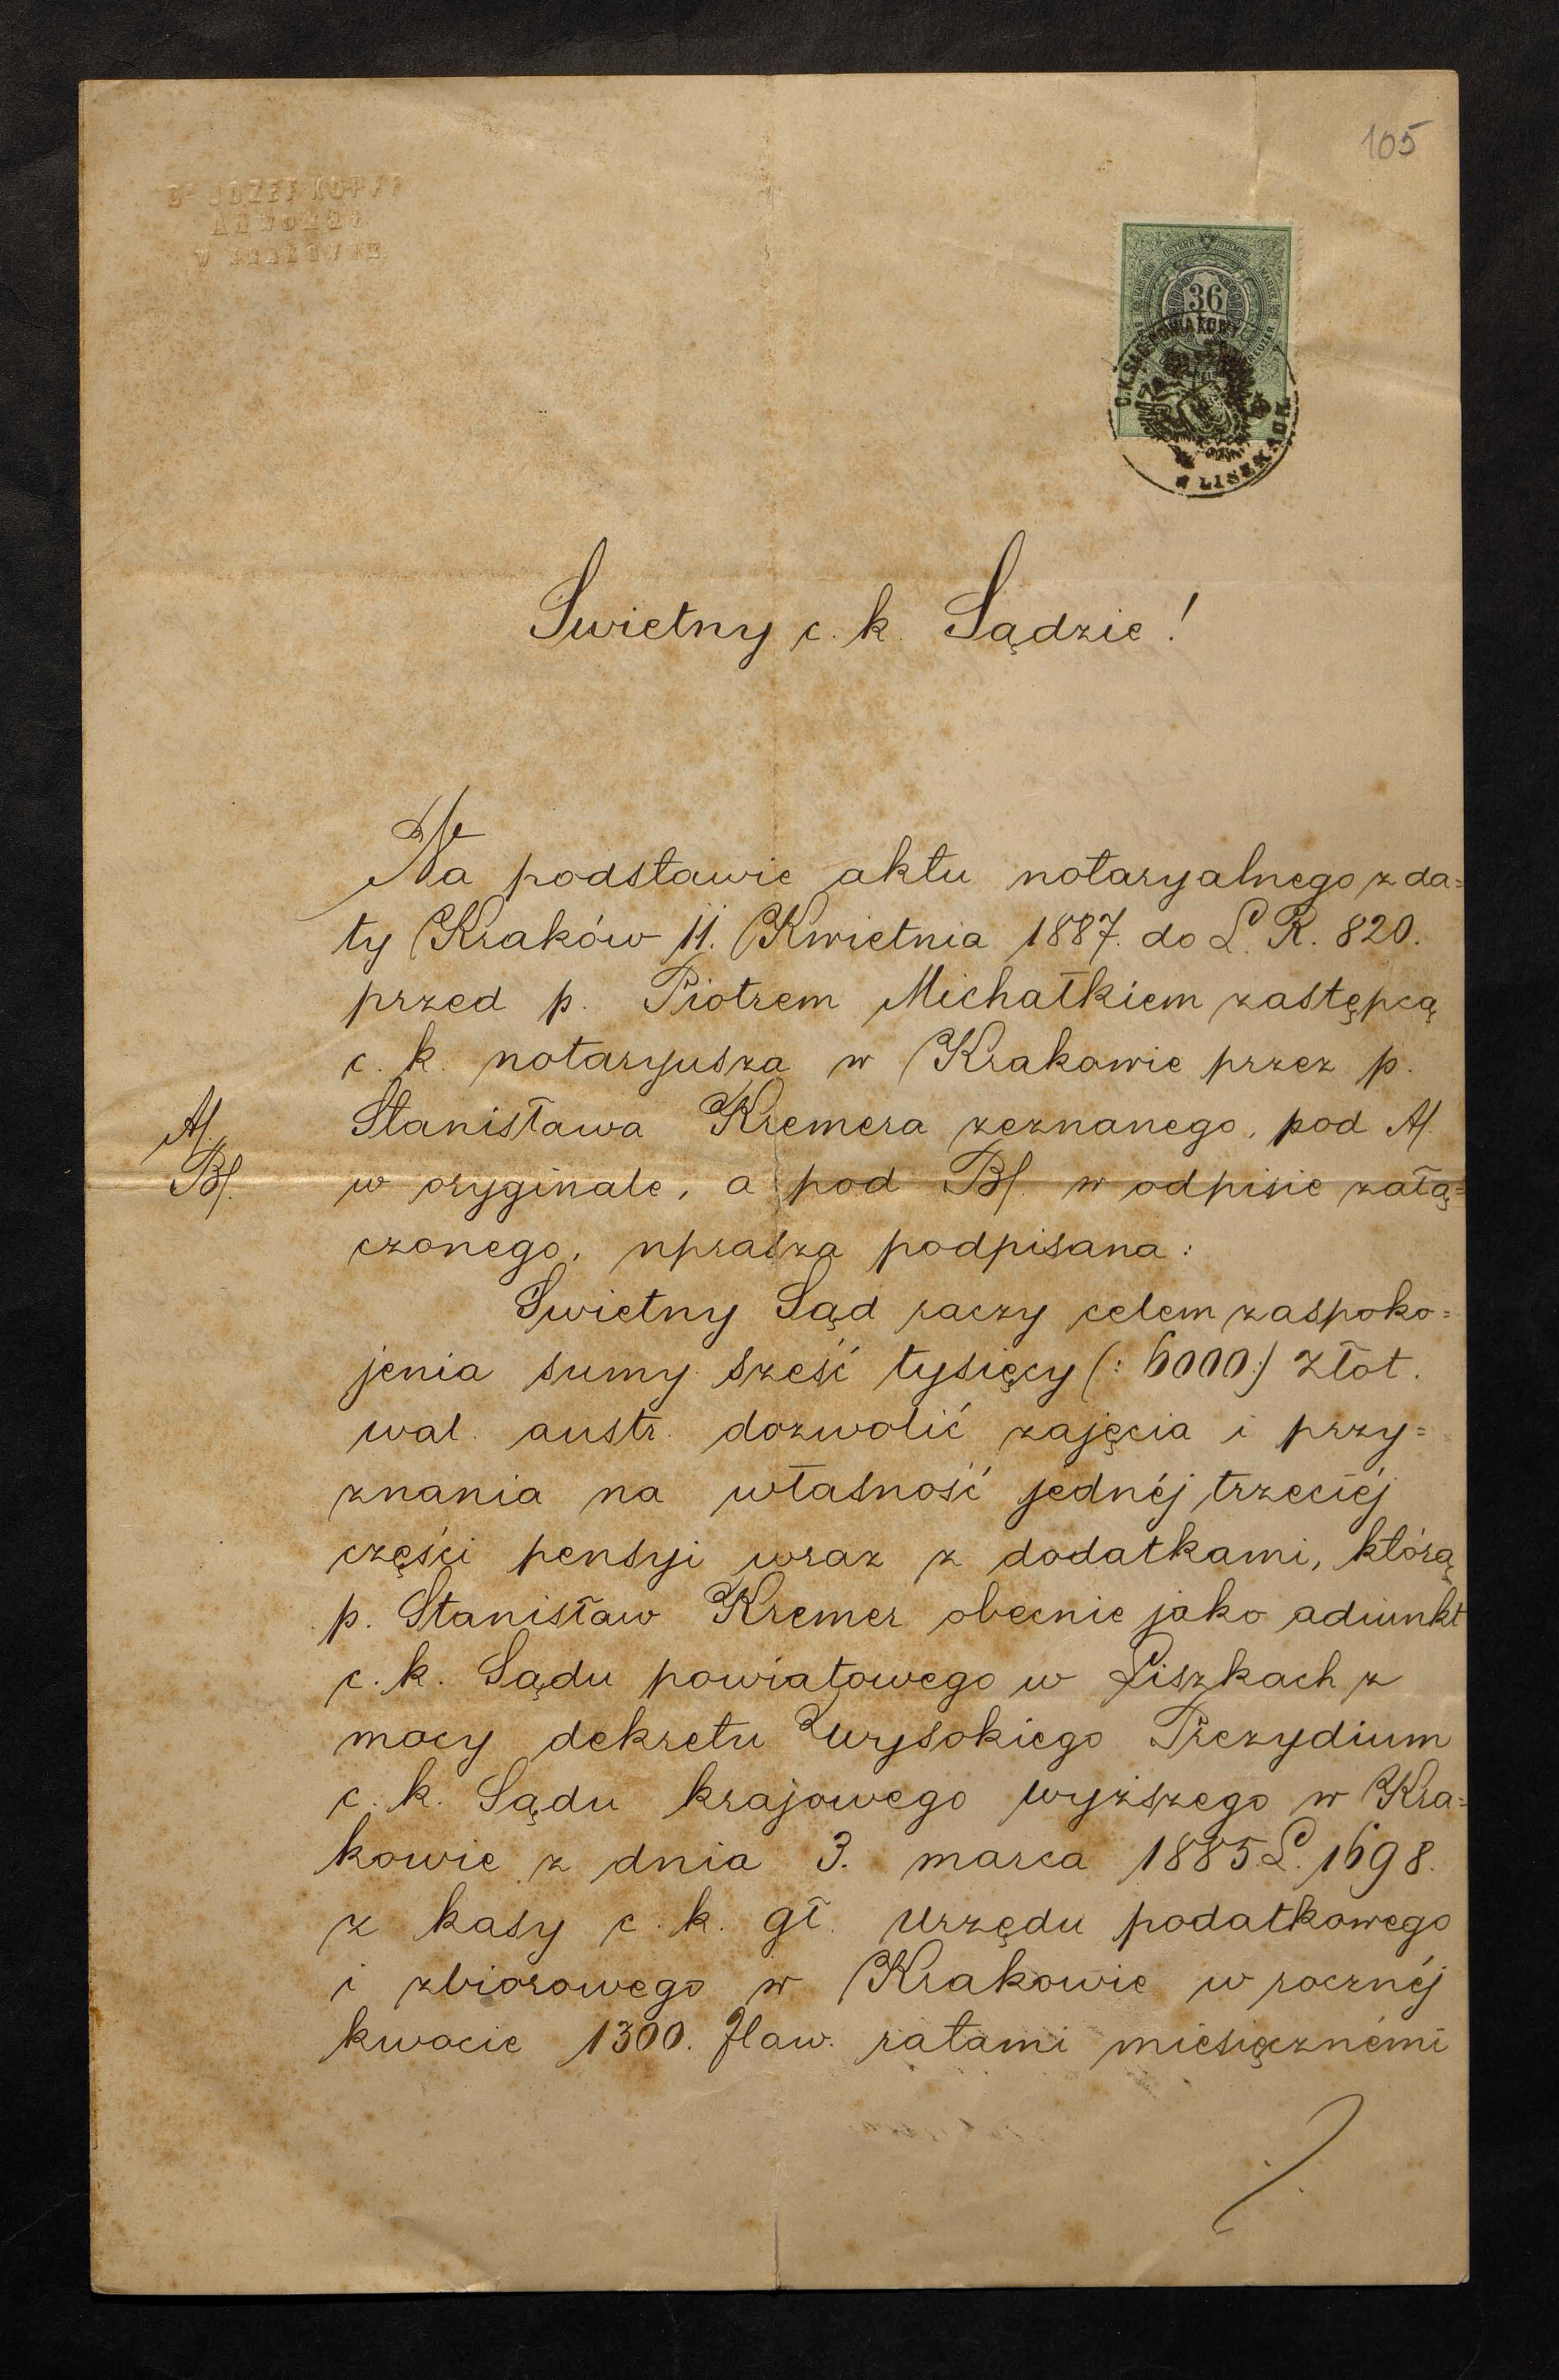 105
Dr JÓZEF KOPFF
ADWOKAT
W KRAKOWIE.
36
C.K. SĄD POWIATOWY
W LISZKACH
Swietny c. k. Sądzie!
Na podstawie aktu notaryalnego z da=
ty Kraków 11. Kwietnia 1887. do L. R. 820.
przed p. Piotrem Michałkiem zastępcą
c. k. notaryusza w Krakowie przez p.
A/. Stanisława Kremera zeznanego, pod A/.
B/. w oryginale, a pod B/. w odpisie załą=
czonego, uprasza podpisana:
Swietny Sąd raczy celem zaspoko=
jenia sumy sześć tysięcy (: 6000:) Złot.
wal. austr. dozwolić zajęcia i przy=
znania na własność jednéj trzeciéj
części pensyi wraz z dodatkami, którą
p. Stanisław Kremer obecnie jako adiunkt
c. k. Sądu powiatowego w Liszkach z
mocy dekretu Wysokiego Prezydium
c. k. Sądu krajowego wyższego w Kra=
kowie z dnia 3. marca 1885 L. 1698.
z kasy c. k. gł. Urzędu podatkowego
i zbiorowego w Krakowie w rocznéj
kwocie 1300. Zław. ratami miesięcznémi